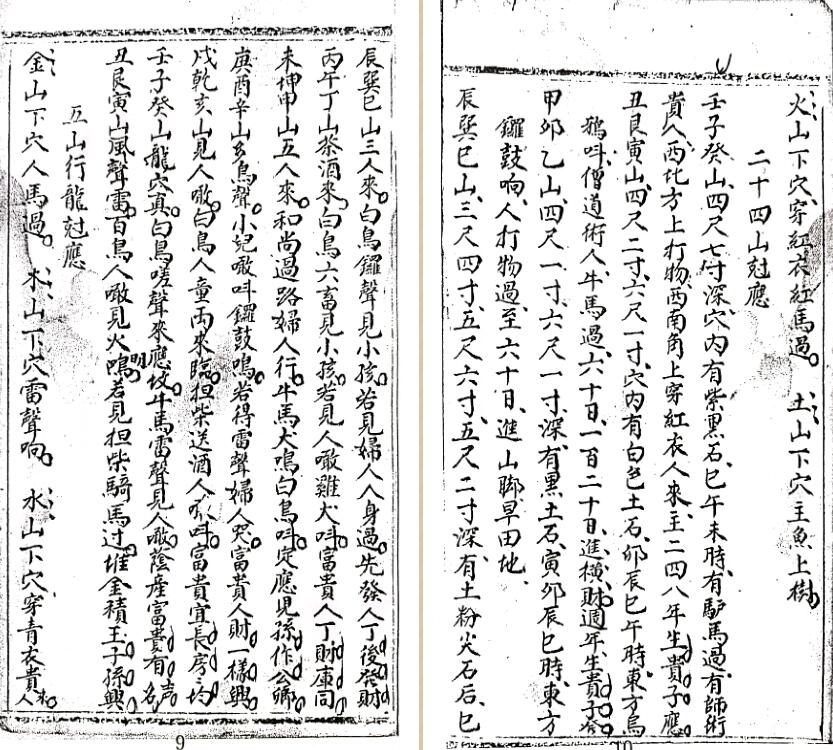 辰巽巳山三人來白鳥鑼聲見小孩若見婦人人身過先發人丁後發財
丙午丁山茶酒來白鳥六畜見小孩若見人噉雞犬呌富貴人丁財庫同
未坤申山五人來和尚過路婦人行牛馬犬鳴白鳥呌定應児孫作公卿
庚酉辛山玄鳥聲小兒噉呌鑼鼓鳴若得雷聲婦人哭富貴人財一樣興
戌乾亥山見人噉白鳥人童雨來臨担柴送酒人呌富貴宜長房房均
壬子癸山龍穴真白鳥嗟聲來應坟牛馬雷聲見人噉蔭產富貴有名声
丑艮寅山風聲雷百鳥人噉見火鳴明若見担柴騎馬过堆金積玉子孫興
五山行龍尅應
金山下穴人馬過 木山下穴雷聲响 水山下穴穿青衣貴人來
9
火山下穴穿紅衣紅馬過 土山下穴主魚上樹
二十四山尅應
壬子癸山四尺七寸深穴内有紫黑石巳午未時有馿馬過有師術
貴人西北方上打物西南角上穿紅衣人來主二四八年生貴子應
丑艮寅山四尺二寸六尺一寸穴内有白色土石卯辰巳午時東方烏
鴉呌僧道術人牛馬過六十日一百二十日進横財週年生貴子答
甲卯乙山四尺一寸六尺一寸深有黑土石寅卯辰巳時東方
鑼鼓响人打物過至六十日進山脚旱田地
辰巽巳山三尺四寸五尺六寸五尺二寸深有土粉尖石后巳
10